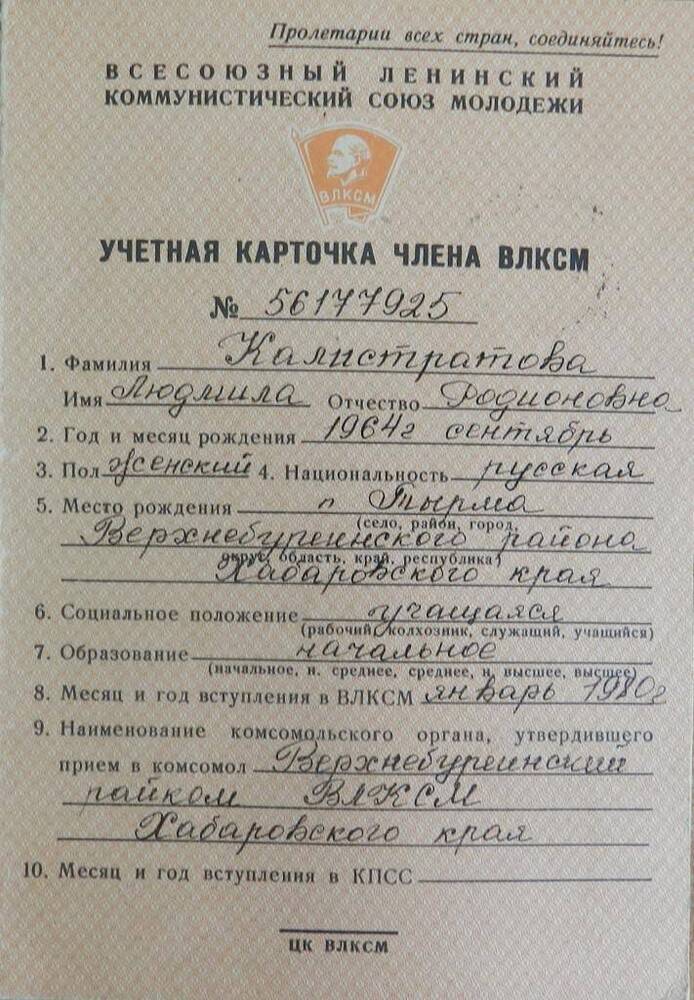 Пролетарии всех стран, соединяйтесь!
ВСЕСОЮЗНЫЙ ЛЕНИНСКИЙ
КОММУНИСТИЧЕСКИЙ СОЮЗ МОЛОДЕЖИ
ВЛКСМ
УЧЕТНАЯ КАРТОЧКА ЧЛЕНА ВЛКСМ
№ 56177925
1. Фамилия Калистратова
Имя Людмила Отчество Родионовна
2. Год и месяц рождения 1964г сентябрь
3. Пол женский 4. Национальность русская
5. Место рождения п Тырма
(село, район, город,
Верхнебуреинского района
округ, область, край, республика)
Хабаровского края
6. Социальное положение учащаяся
(рабочий, колхозник, служащий, учащийся)
7. Образование начальное
(начальное, н. среднее, среднее, н. высшее, высшее)
8. Месяц и год вступления в ВЛКСМ январь 1980г
9. Наименование комсомольского органа, утвердившего
прием в комсомол Верхнебуреинский
райком ВЛКСМ
Хабаровского края
10. Месяц и год вступления в КПСС
ЦК ВЛКСМ